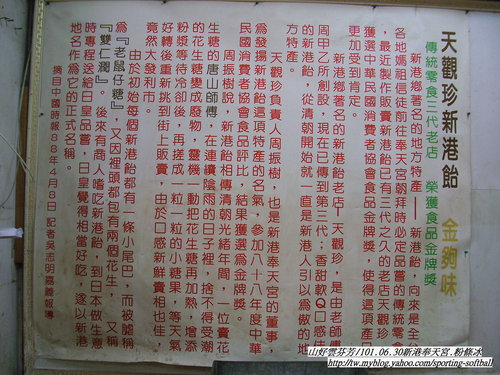 天觀珍新港飴　金夠味
傳統零食三代老店　榮獲食品金牌獎
新港鄉著名的地方特產──新港飴，向來是全省
各地媽祖信徒前往奉天宮朝拜時必定品嘗的傳統零食
，最近製作販賣新港飴已有三代之久的老店天觀珍
獲選中華民國消費者協會食品金牌獎，使得這項產品
更加受到肯定。
新港鄉著名的新港飴老店─天觀珍，是由老師傅
周甲乙所創設，現在已傳到第三代；香甜軟Ｑ口感佳
的新港飴，從清朝開始就一直是新港人引以為傲的地
方特產。
天觀珍負責人周振樹，也是新港奉天宮的董事，
為發揚新港飴這項特產的名氣，參加八十八年度中華
民國消費者協會食品評比，結果獲選為金牌獎。
周振樹說，新港飴相傳清朝光緒年間，一位賣花
生糖的唐山師傅，在連續陰雨的日子裡，捨不得受潮
的花生糖變成廢物，靈機一動把花生糖再加熱，增添
粉漿等待冷卻後，再搓成一粒一粒的小糖果，等天氣
好轉後重新挑到街上販賣，由於口感新鮮賣相也佳，
竟然大發利市。
由於初始每個新港飴都有一條小尾巴，而被謔稱
為『老鼠仔糖』，又因裡頭都包有兩個花生，又稱
『雙仁潤』。後來有商人嗜吃新港飴，到日本做生意
時專程送給日皇品嘗，日皇覺得相當好吃，遂以新港
地名作為它的正式名稱。
摘自中國時報88年4月8日 記者吳志明嘉義報導
山好雲芬芳/101.06.30新港奉天宮.粉條冰
http://tw.myblog.yahoo.com/sporting-softbal